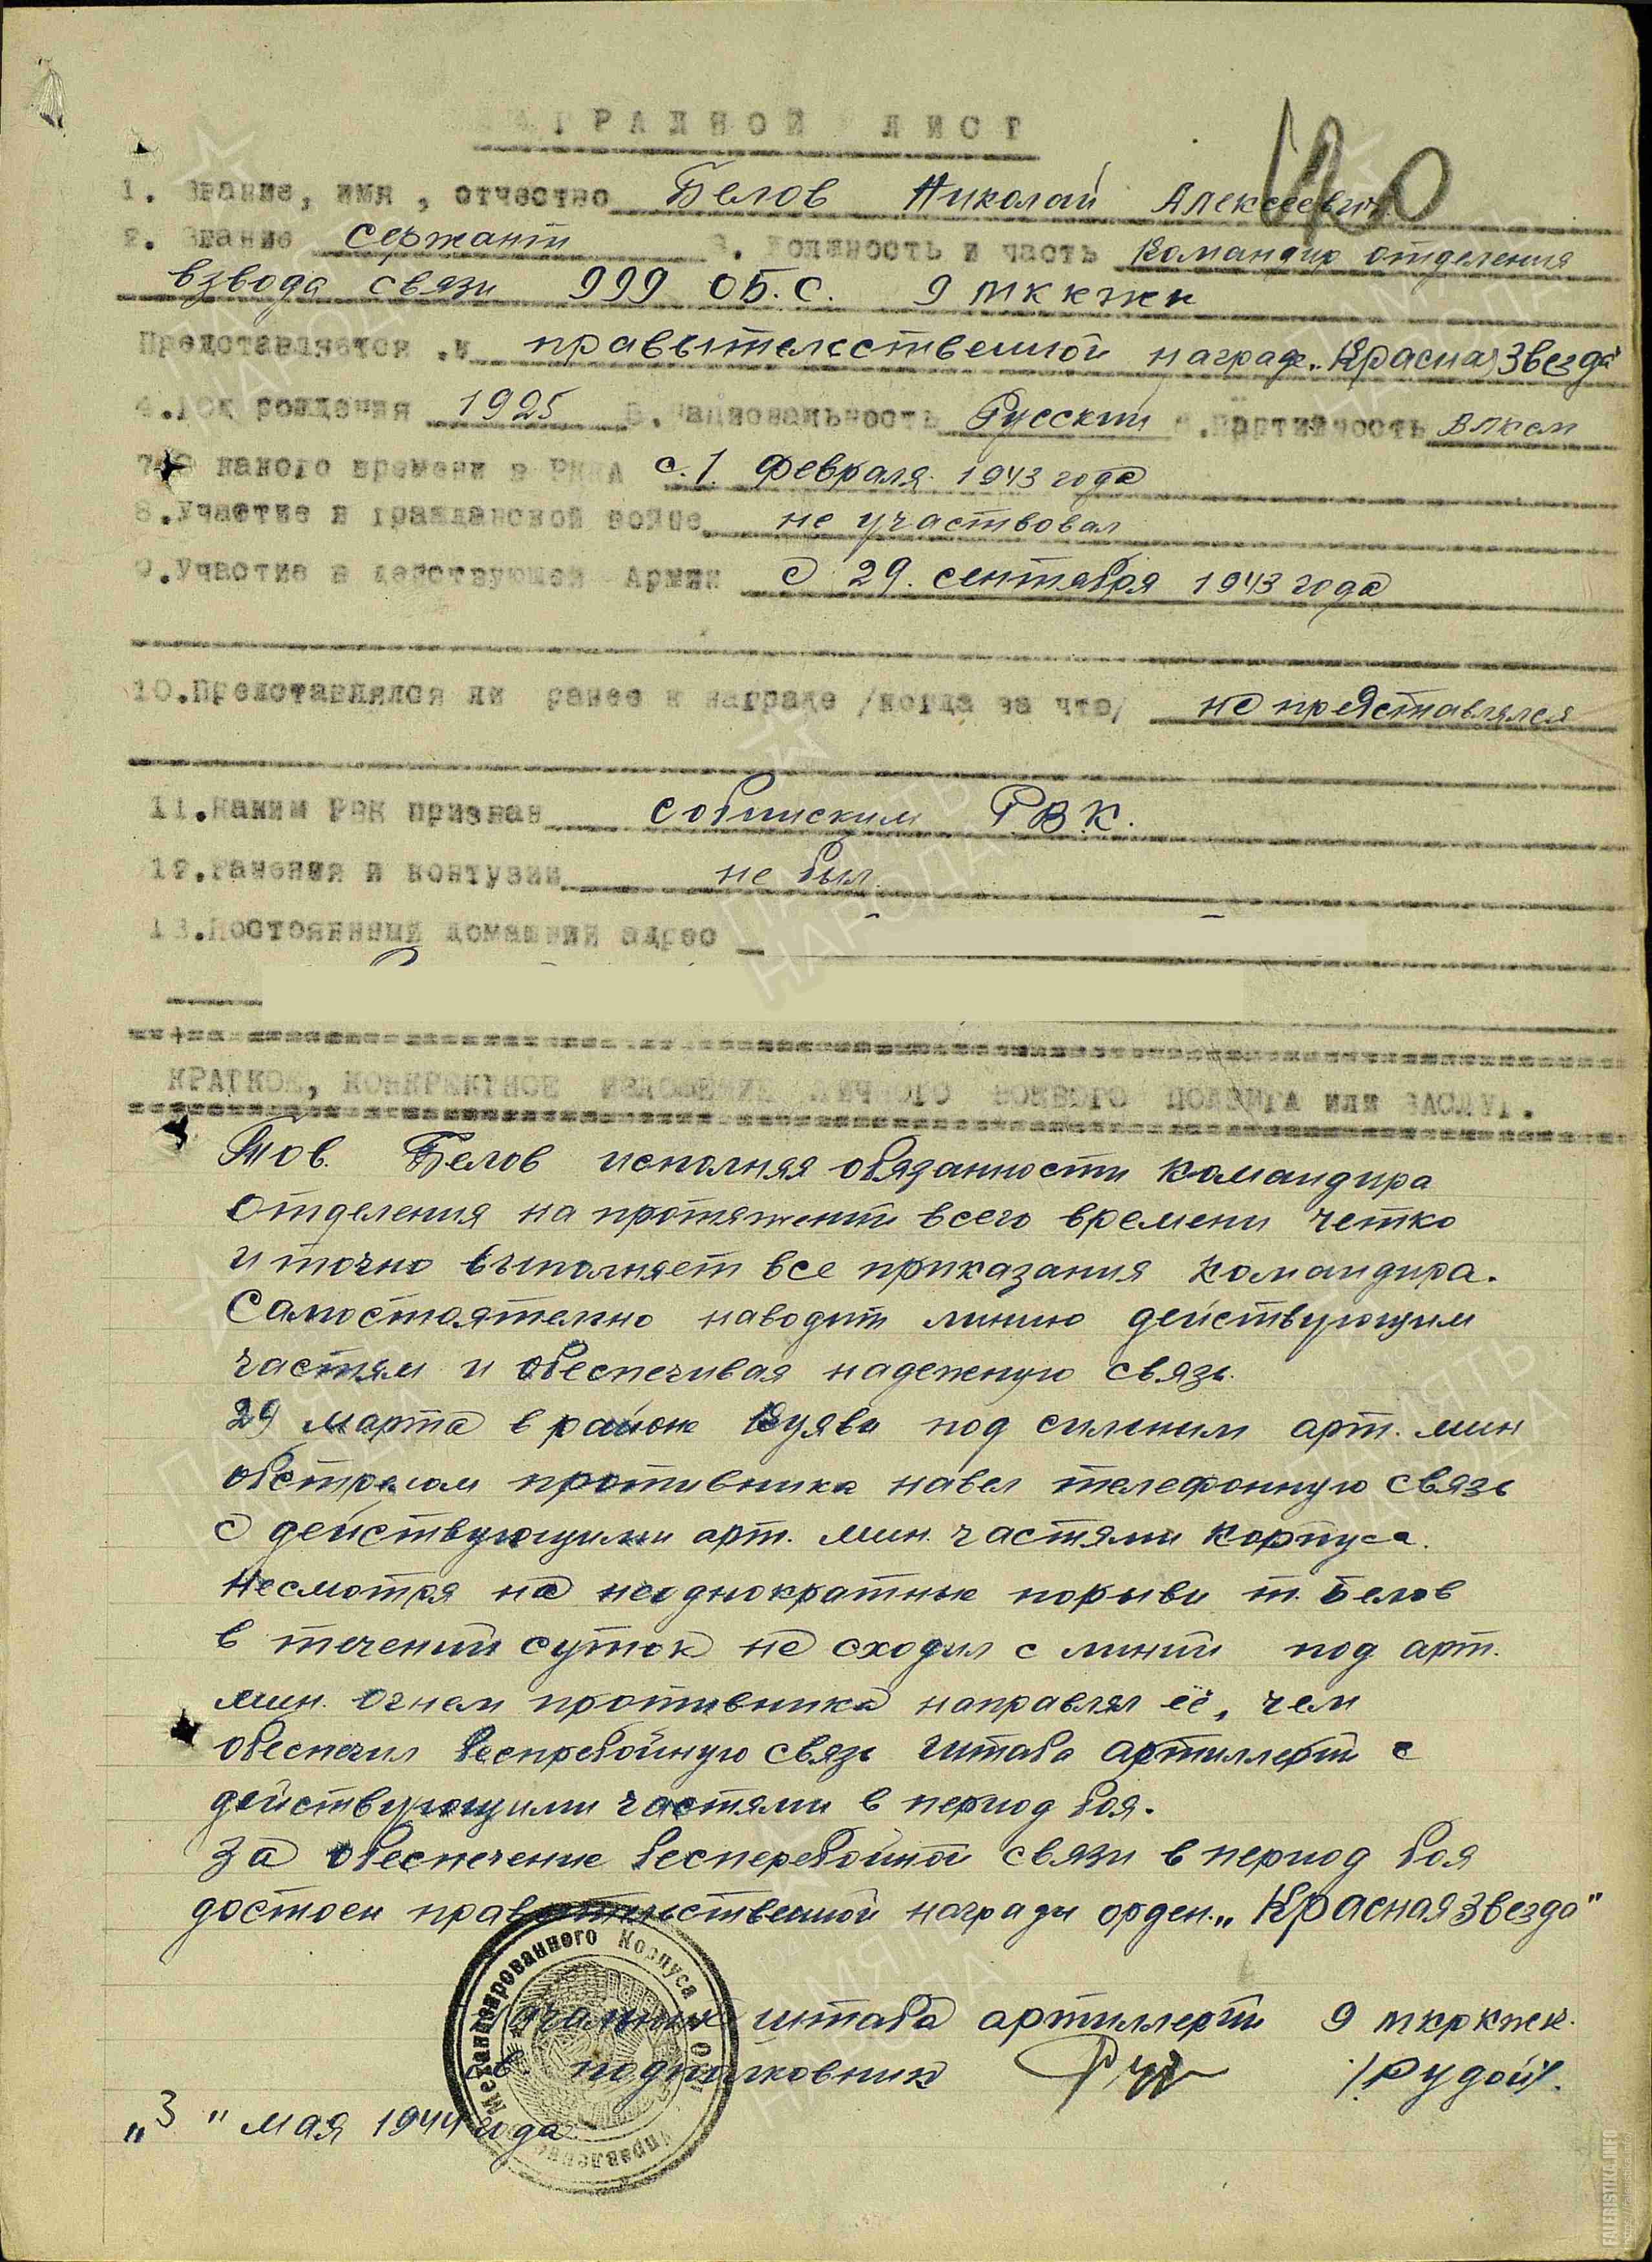 НАГРАДНОЙ ЛИСТ
1. Звание, имя, отчество Белов Николай Алексеевич
2. Звание сержант 3. Должность и часть Командир отделения
взвода связи 999 ОБ.С. 9 мк ккжк
Представляется к правительственной награде „Красная Звезда"
4. Год рождения 1925 5. Национальность Русский 6. Партийность ВЛКСМ
7. С какого времени в РККА с. 1. февраля 1943 года
8. Участие в гражданской войне не участвовал
9. Участие в действующей Армии с 29. сентября 1943 года
10. Представлялся ли ранее к награде /когда за что/ не представлялся
11. Каким РВК призван Собинским Р.В.К.
12. Ранения и контузии не был.
13. Постоянный домашний адрес
КРАТКОЕ, КОНКРЕКТНОЕ ИЗЛОЖЕНИЕ ЛИЧНОГО БОЕВОГО ПОДВИГА ИЛИ ЗАСЛУГ.
Тов. Белов исполняя обязанности командира
отделения на протяжении всего времени четко
и точно выполняет все приказания командира.
Самостоятельно наводит линию действующим
частям и обеспечивая надежную связь.
29 марта в районе под сильным арт. мин
обстрелом противника навел телефонную связь
с действующими арт. мин. частями корпуса.
Несмотря на неоднократные порывы т. Белов
в течении суток не сходил с линии под арт.
мин. огнем противника направлял её, чем
обеспечил беспребойную связь штаба артиллерии с
действующими частями в период боя.
За обеспечение бесперебойной связи в период боя
достоен правительственной награды орден „Красная звезда"
Начальник штаба артиллерии 9 мкркжк.
подполковник /Рудой/.
„3" мая 1944 года
Механизированного Корпуса
Управление
ПАМЯТЬ НАРОДА
FALERISTIKA.INFO